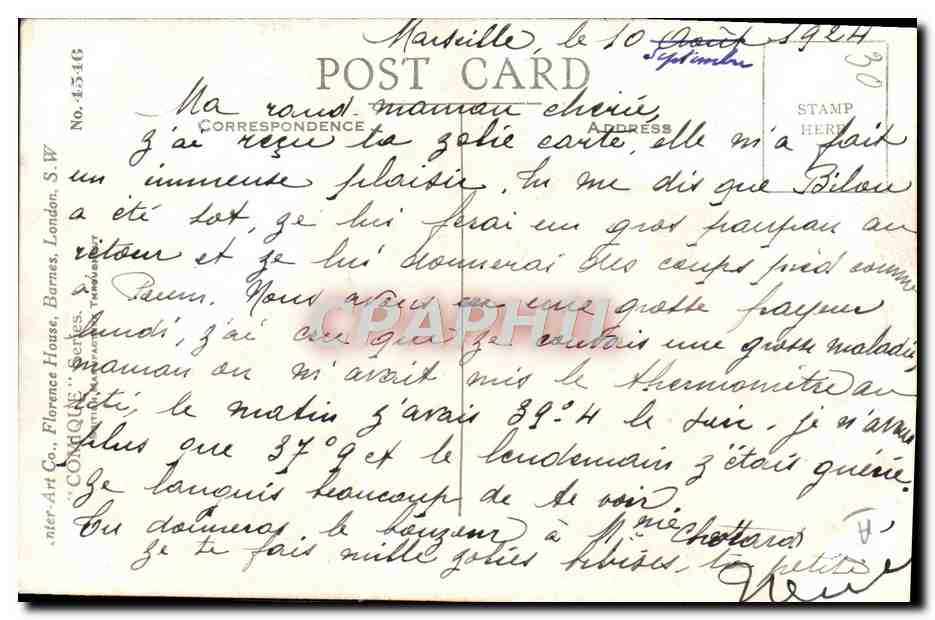 Marseille, le 10 Août 1924
Septembre
POST CARD
30
STAMP
HERE
CORRESPONDENCE
ADDRESS
No. 4546
Inter-Art Co., Florence House, Barnes, London, S.W
"COMIQUE" Series.
BRITISH MANUFACTURE THROUGHOUT
Ma rand maman chérie,
z'ai reçu ta zolie carte, elle m'a fait
un immense plaisir. Tu me dis que Bilou
a été sot, ze lui ferai un gros panpan au
retour et ze lui donnerai des coups pied comme
à Poum. Nous avons eu une grosse frayeur
lundi, z'ai cru que ze couvais une grosse maladie,
maman on m'avait mis le thermomètre au
le matin z'avais 39°4 le soir je n'avais
plus que 37°9 et le lendemain z'étais guérie.
Ze languis beaucoup de te voir.
Tu donneras le bonzour à Mme Chottard
ze te fais mille zolies bibises, ta petite
CPAPHIL